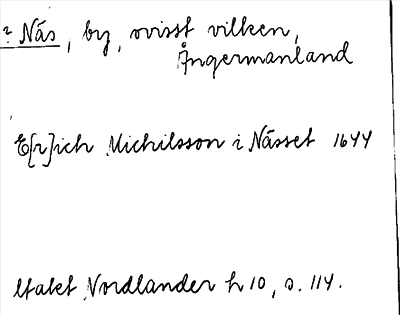 ? Näs, by, ovisst vilken,
Ångermanland
E[r]ich Michilsson i Nässet 1644
Utalet Nordlander h 10, s. 114.